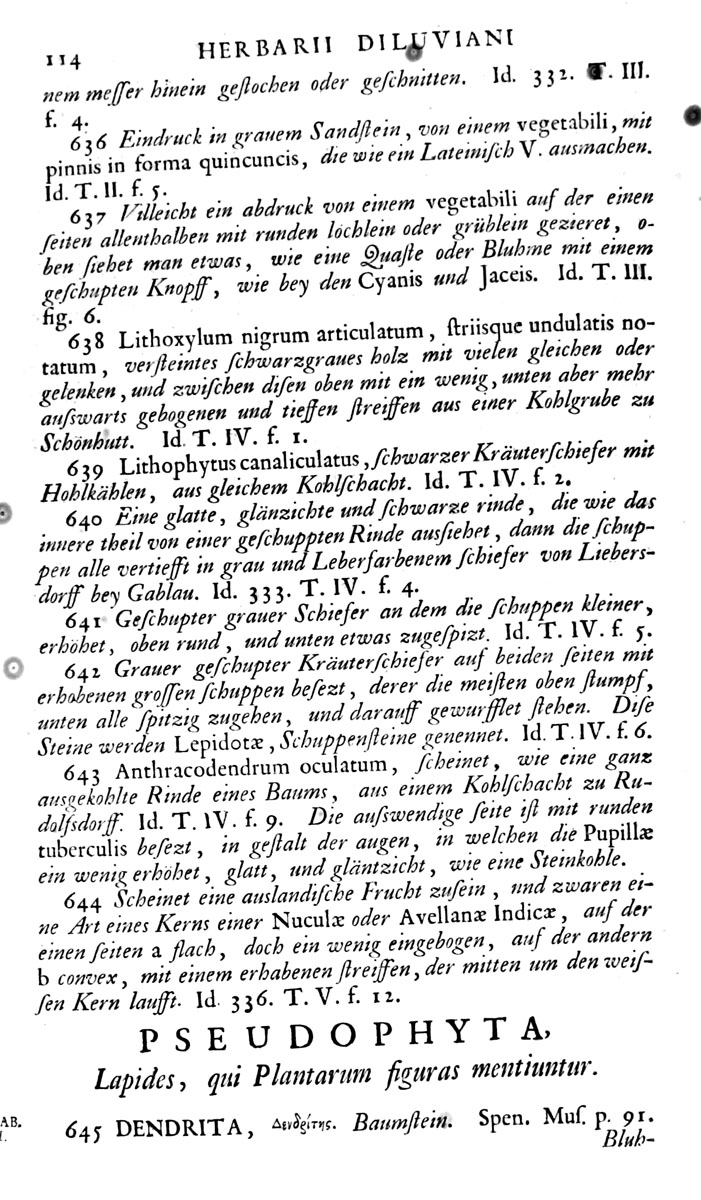 114 HERBARII DILUVIANI
nem meſſer hinein geſtochen oder geſchnitten. Id. 332. T. III.
f. 4.
636 Eindruck in grauem Sandſtein, von einem vegetabili, mit
pinnis in forma quincuncis, die wie ein Lateiniſch V. ausmachen.
Id. T. II. f. 5.
637 Villeicht ein abdruck von einem vegetabili auf der einen
ſeiten allenthalben mit runden löchlein oder grüblein gezieret, o-
ben ſiehet man etwas, wie eine Quaſte oder Bluhme mit einem
geſchupten Knopff, wie bey den Cyanis und Jaceis. Id. T. III.
fig. 6.
638 Lithoxylum nigrum articulatum, ſtriisque undulatis no-
tatum, verſteintes ſchwarzgraues holz mit vielen gleichen oder
gelenken, und zwiſchen diſen oben mit ein wenig, unten aber mehr
auſswarts gebogenen und tieffen ſtreiffen aus einer Kohlgrube zu
Schönhutt. Id. T. IV. f. 1.
639 Lithophytus canaliculatus, ſchwarzer Kräuterſchiefer mit
Hohlkählen, aus gleichem Kohlſchacht. Id. T. IV. f. 2.
640 Eine glatte, glänzichte und ſchwarze rinde, die wie das
innere theil von einer geſchuppten Rinde ausſiehet, dann die ſchup-
pen alle vertiefft in grau und Leberfarbenem ſchiefer von Liebers-
dorff bey Gablau. Id. 333. T. IV. f. 4.
641 Geſchupter grauer Schiefer an dem die ſchuppen kleiner,
erhöhet, oben rund, und unten etwas zugeſpizt. Id. T. IV. f. 5.
642 Grauer geſchupter Kräuterſchiefer auf beiden ſeiten mit
erhobenen groſſen ſchuppen beſezt, derer die meiſten oben ſtumpf,
unten alle ſpitzig zugehen, und darauff gewurfflet ſtehen. Diſe
Steine werden Lepidotæ, Schuppenſteine genennet. Id. T. IV. f. 6.
643 Anthracodendrum oculatum, ſcheinet, wie eine ganz
ausgekohlte Rinde eines Baums, aus einem Kohlſchacht zu Ru-
dolfsdorff. Id. T. IV. f. 9. Die auſswendige ſeite iſt mit runden
tuberculis beſezt, in geſtalt der augen, in welchen die Pupillæ
ein wenig erhöhet, glatt, und gläntzicht, wie eine Steinkohle.
644 Scheinet eine auslandiſche Frucht zuſein, und zwaren ei-
ne Art eines Kerns einer Nuculæ oder Avellanæ Indicæ, auf der
einen ſeiten a flach, doch ein wenig eingebogen, auf der andern
b convex, mit einem erhabenen ſtreiffen, der mitten um den weiſ-
ſen Kern laufft. Id. 336. T. V. f. 12.
PSEUDOPHYTA,
Lapides, qui Plantarum figuras mentiuntur.
AB.
645 DENDRITA, Δενδρίτης. Baumſtein. Spen. Muſ. p. 91.
Bluh-